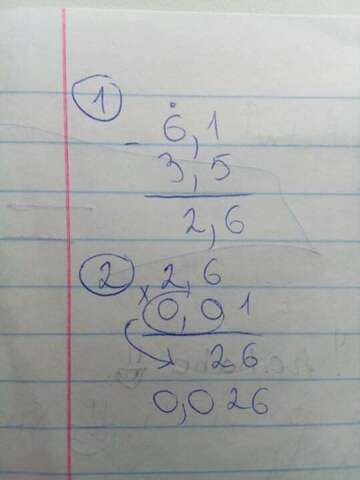 1
6,1
- 3,5
2,6
2 x 2,6
0,01
26
0,026